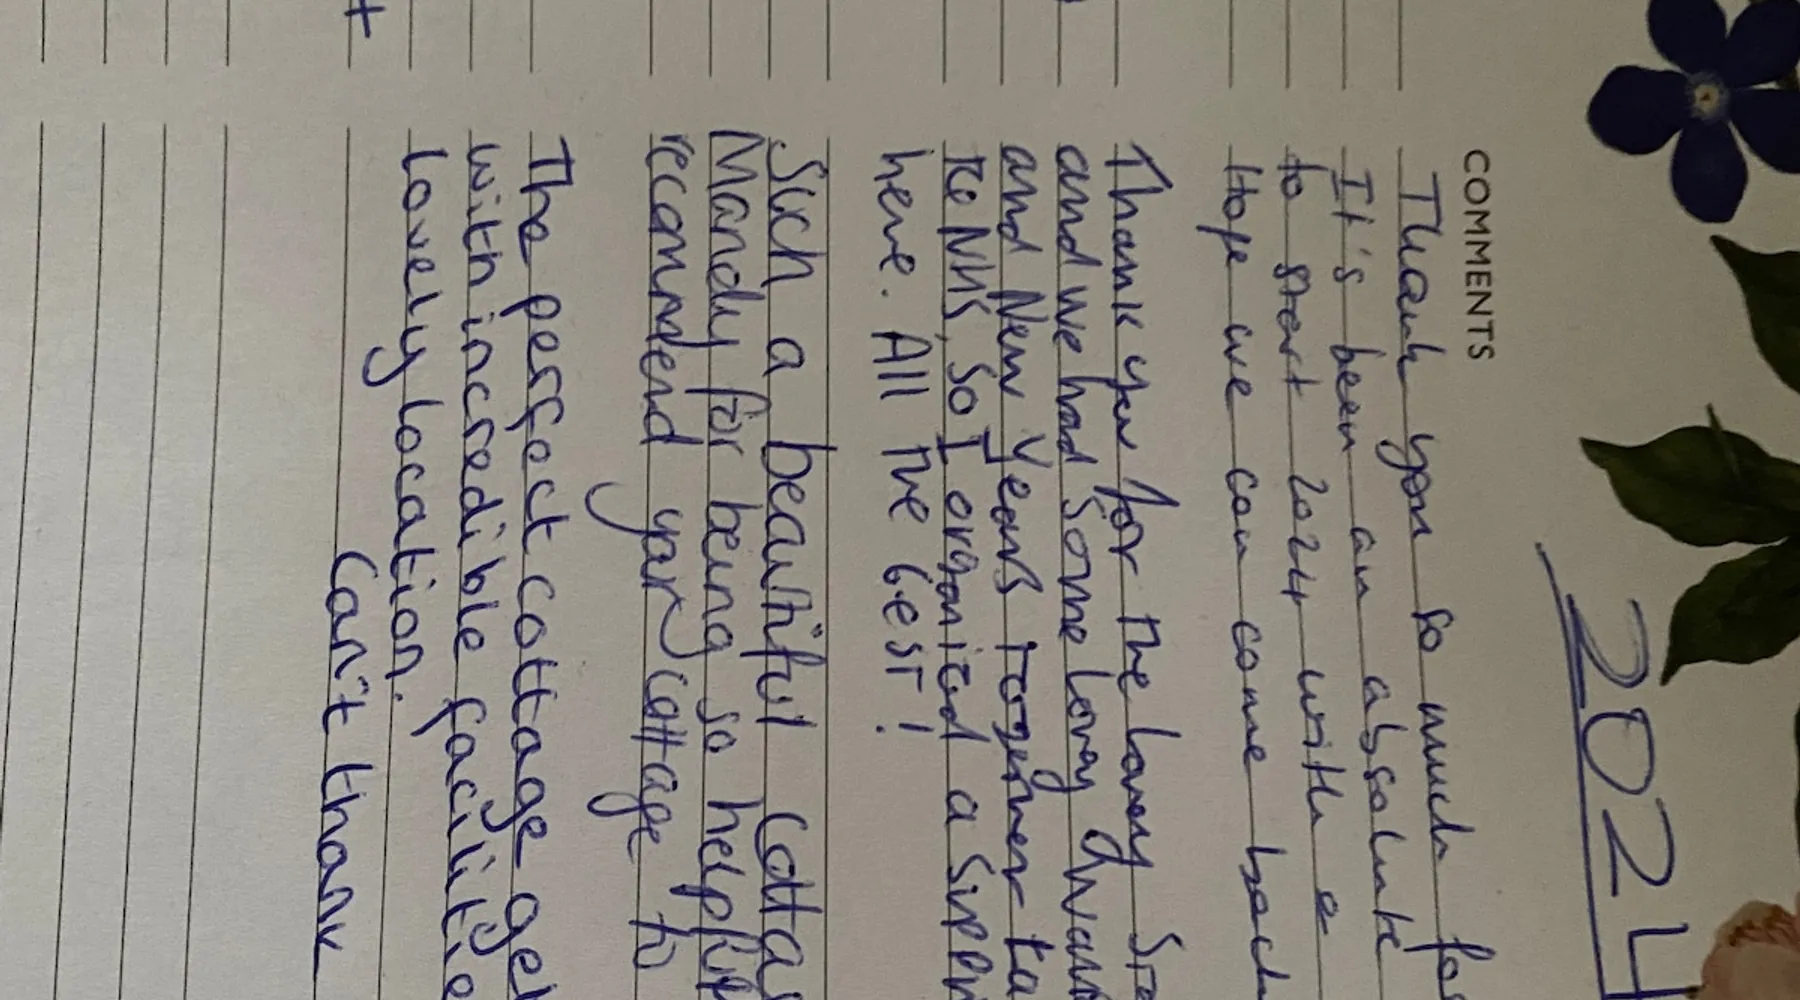 2024
COMMENTS
Thank you so much for
It's been an absolute
to start 2024 with a
Hope we can come back
Thank you for the lovely
and we had some lovely
and New Years together
to NHS, so I organised a
here. All the best!
Such a beautiful
Mandy for being so
recommend your cottage to
The perfect cottage
with incredible
lovely location.
Can't thank